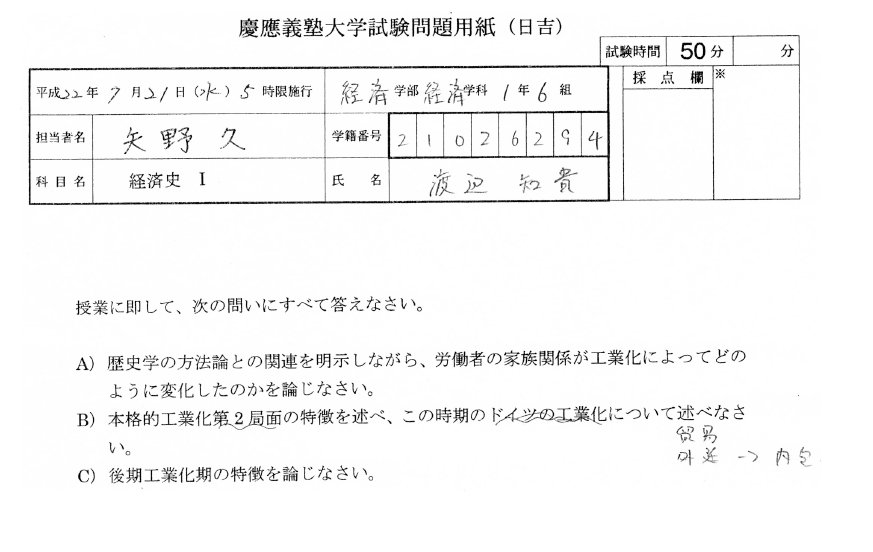 慶應義塾大学試験問題用紙（日吉）
試験時間 50分 分
平成22年7月21日（水）5時限施行 経済学部経済学科1年6組
採点欄 ※
担当者名 矢野久 学籍番号 21026294
科目名 経済史 I 氏名 渡辺 知貴
授業に即して、次の問いにすべて答えなさい。
A）歴史学の方法論との関連を明示しながら、労働者の家族関係が工業化によってどの
ように変化したのかを論じなさい。
B）本格的工業化第2局面の特徴を述べ、この時期のドイツの工業化について述べなさ
い。
貿易
外延 -> 内包
C）後期工業化期の特徴を論じなさい。